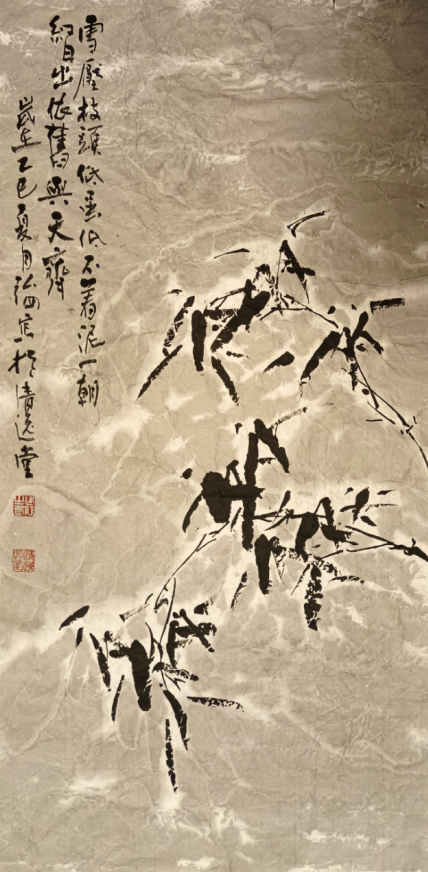 雪壓枝頭低虽低不着泥一朝
紅日出依舊與天齊
歲在乙巳夏月弘四寫於清逸堂